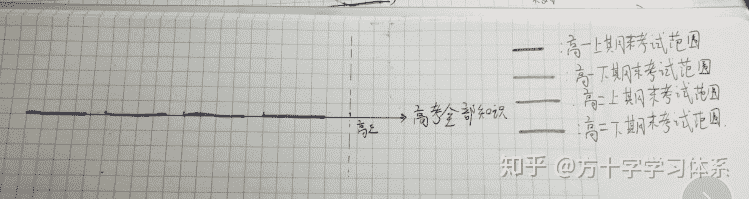 高一上期末考试范围
高一下期末考试范围
高二上期末考试范围
高二下期末考试范围
高考全部知识
高三
知乎 @方十字学习体系